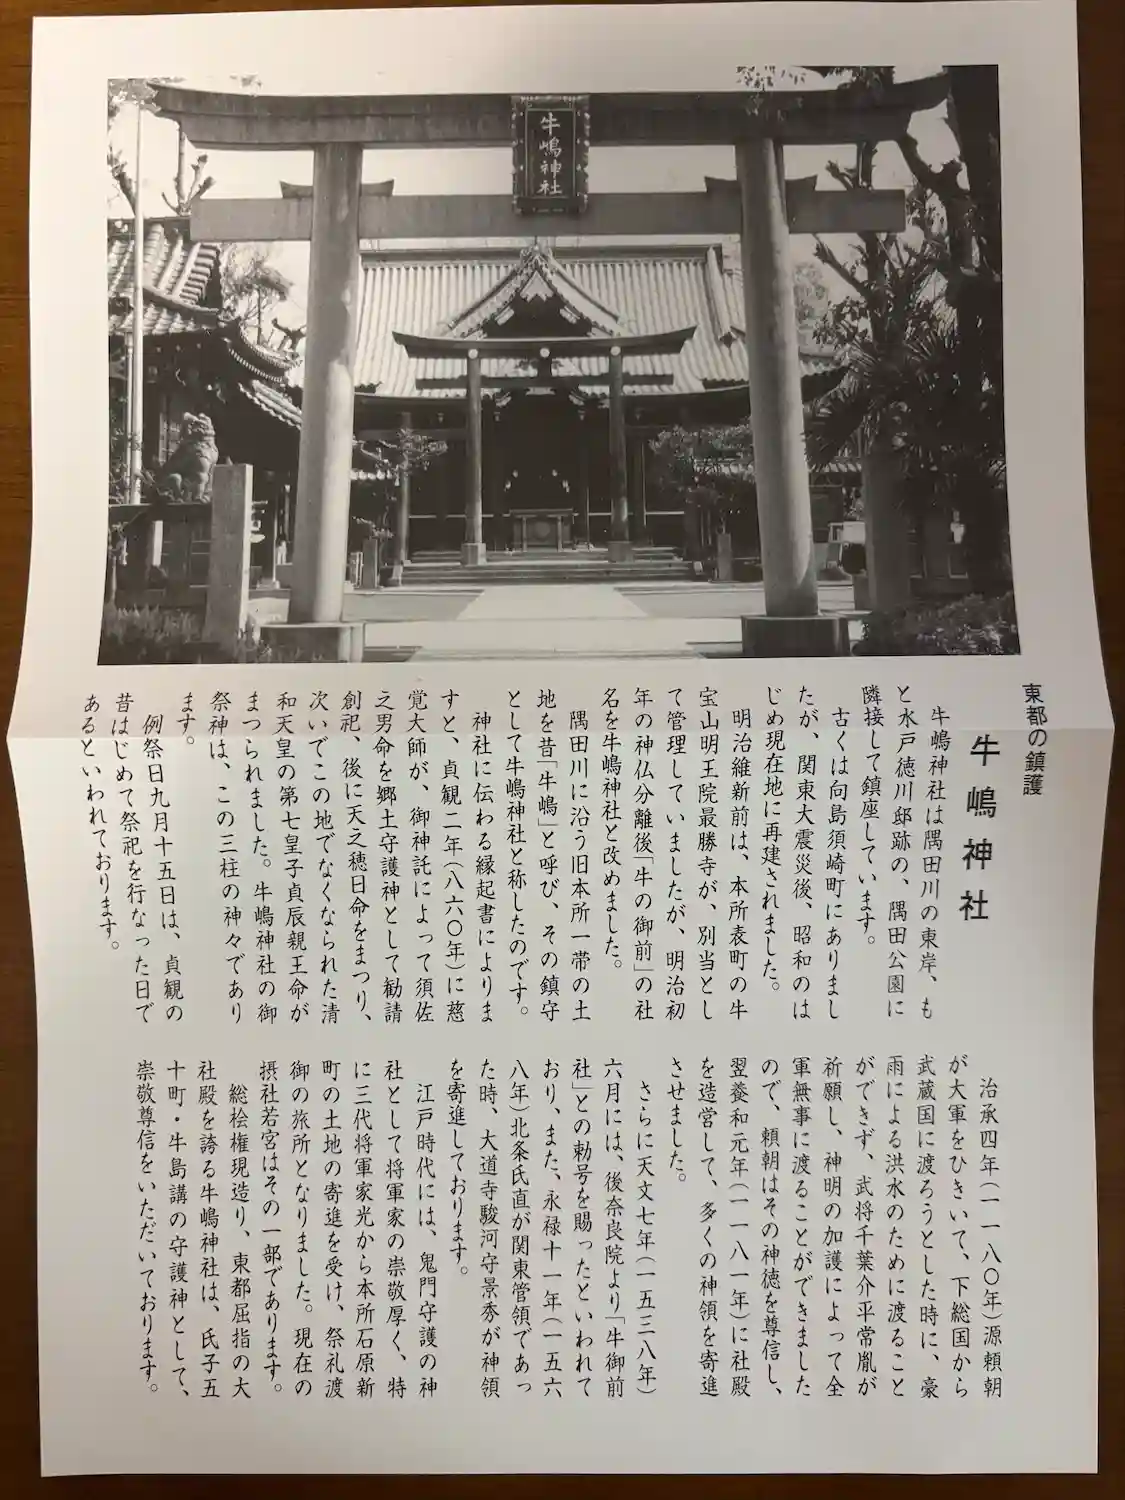 牛嶋神社
東都の鎮護
牛嶋神社
牛嶋神社は隅田川の東岸、も
と水戸徳川邸跡の、隅田公園に
隣接して鎮座しています。
古くは向島須崎町にありまし
たが、関東大震災後、昭和のは
じめ現在地に再建されました。
明治維新前は、本所表町の牛
宝山明王院最勝寺が、別当とし
て管理していましたが、明治初
年の神仏分離後「牛の御前」の社
名を牛嶋神社と改めました。
隅田川に沿う旧本所一帯の土
地を昔「牛嶋」と呼び、その鎮守
として牛嶋神社と称したのです。
神社に伝わる縁起書によりま
すと、貞観二年(八六〇年)に慈
覚大師が、御神託によって須佐
之男命を郷土守護神として勧請
創祀、後に天之穂日命をまつり、
次いでこの地でなくなられた清
和天皇の第七皇子貞辰親王命が
まつられました。牛嶋神社の御
祭神は、この三柱の神々であり
ます。
例祭日九月十五日は、貞観の
昔はじめて祭祀を行なった日で
あるといわれております。
治承四年(一一八〇年)源頼朝
が大軍をひきいて、下総国から
武蔵国に渡ろうとした時に、豪
雨による洪水のために渡ること
ができず、武将千葉介平常胤が
祈願し、神明の加護によって全
軍無事に渡ることができました
ので、頼朝はその神徳を尊信し、
翌養和元年(一一八一年)に社殿
を造営して、多くの神領を寄進
させました。
さらに天文七年(一五三八年)
六月には、後奈良院より「牛御前
社」との勅号を賜ったといわれて
おり、また、永禄十一年(一五六
八年)北条氏直が関東管領であっ
た時、大道寺駿河守景秀が神領
を寄進しております。
江戸時代には、鬼門守護の神
社として将軍家の崇敬厚く、特
に三代将軍家光から本所石原新
町の土地の寄進を受け、祭礼渡
御の旅所となりました。現在の
摂社若宮はその一部であります。
総桧権現造り、東都屈指の大
社殿を誇る牛嶋神社は、氏子五
十町・牛島講の守護神として、
崇敬尊信をいただいております。